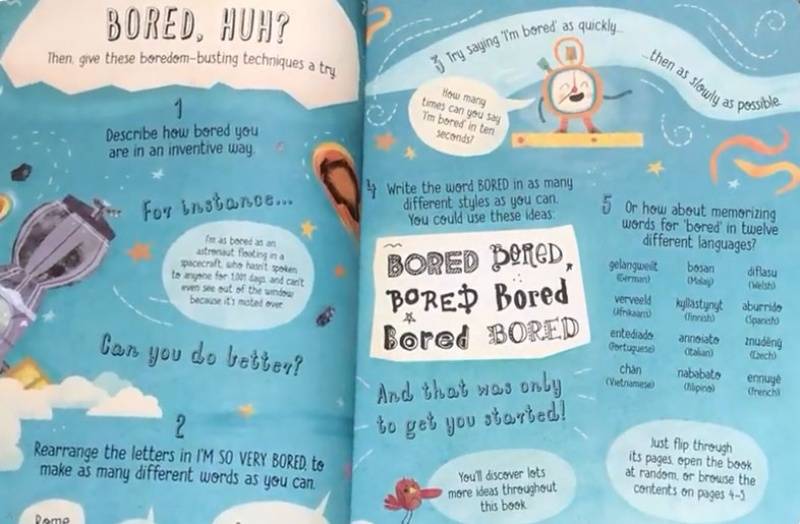 BORED, HUH?
Then, give these boredom-busting techniques a try.
1
Describe how bored you
are in an inventive way.
For instance...
I'm as bored as an
astronaut floating in a
spacecraft, who hasn't spoken
to anyone for 1,001 days, and can't
even see out of the window
because it's misted over.
Can you do better?
2
Rearrange the letters in I'M SO VERY BORED, to
make as many different words as you can.
Rome
3 Try saying 'I'm bored' as quickly...
...then as slowly as possible.
How many
times can you say
'I'm bored' in ten
seconds?
4 Write the word BORED in as many
different styles as you can.
You could use these ideas:
BORED BORED,
BORED Bored
Bored BORED
And that was only
to get you started!
You'll discover lots
more ideas throughout
this book.
5 Or how about memorizing
words for 'bored' in twelve
different languages?
gelangweilt bosan diflasu
(German) (Malay) (Welsh)
verveeld kyllästynyt aburrido
(Afrikaans) (Finnish) (Spanish)
entediado annoiato znuděný
(Portuguese) (Italian) (Czech)
chán nababato ennuyé
(Vietnamese) (Filipino) (French)
Just flip through
its pages, open the book
at random, or browse the
contents on pages 4-5